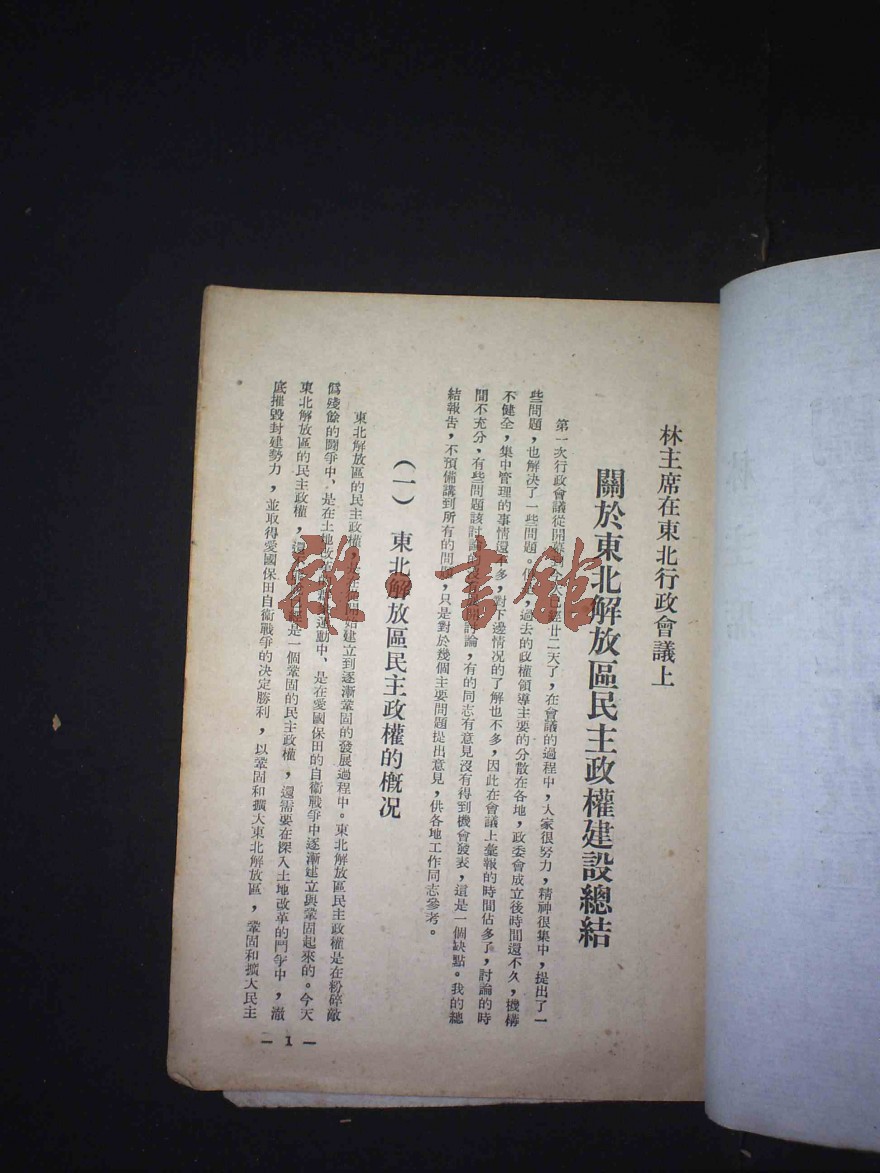 林主席在東北行政會議上
關於東北解放區民主政權建設總結
第一次行政會議從開幕廿二天了，在會議的過程中，大家很努力，精神很集中，提出了一
些問題，也解決了一些問題。但過去的政權領導主要的分散在各地，政委會成立後時間還不久，機構
不健全，集中管理的事情還不多，對下邊情况的了解也不多，因此在會議上彙報的時間估多了，討論的時
間不充分，有些問題該討論的討論，有的同志有意見沒有得到機會發表，這是一個缺點。我的總
結報告，不預備講到所有的問題，只是對於幾個主要問題提出意見，供各地工作同志參考。
（一）東北解放區民主政權的槪况
東北解放區的民主政權，建立到逐漸鞏固的發展過程中。東北解放區民主政權是在粉碎敵
僞殘餘的鬪爭中、是在土地改革運動中、是在愛國保田的自衞戰爭中逐漸建立與鞏固起來的。今天
東北解放區的民主政權，是一個鞏固的民主政權，還需要在深入土地改革的鬥爭中，澈
底摧毀封建勢力，並取得愛國保田自衞戰爭的決定勝利，以鞏固和擴大東北解放區，鞏固和擴大民主
— 1 —
雜·書館